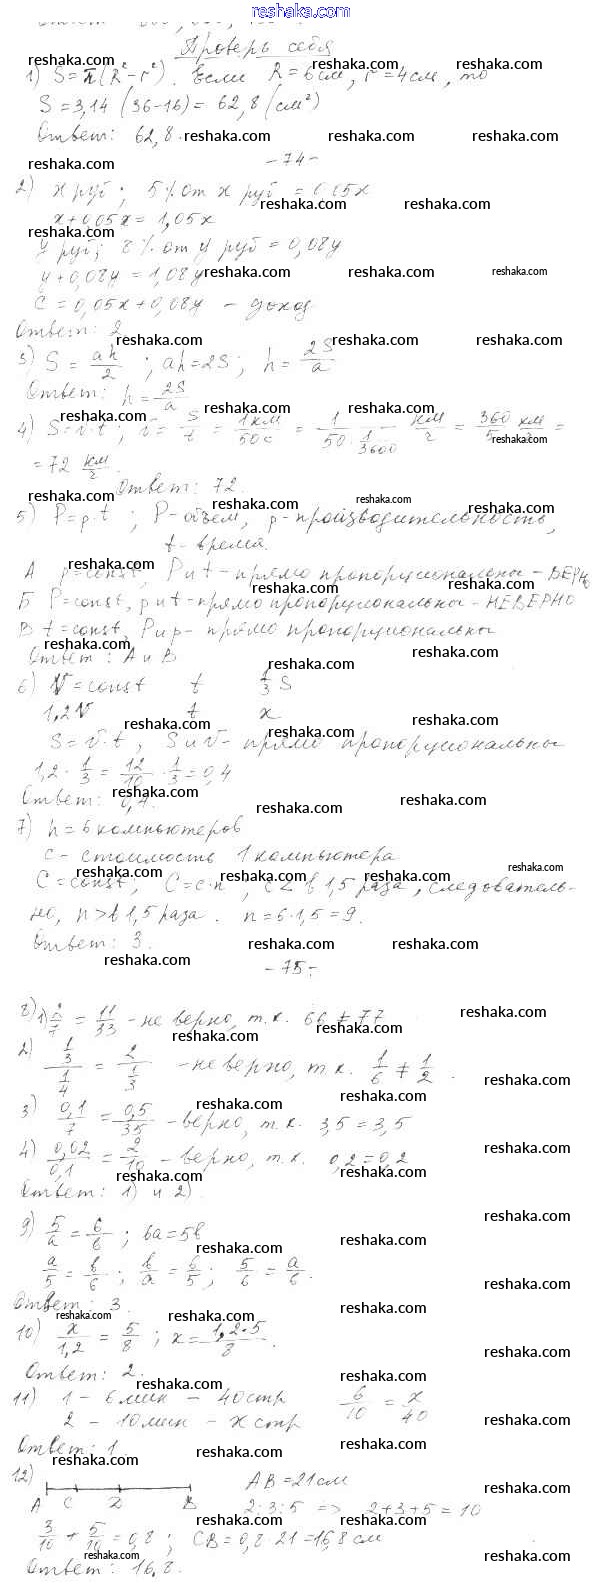 reshaka.com
Проверь себя
1) S = π(R² - r²). Если R = 6 см, r = 4 см, то
S = 3,14 (36-16) = 62,8 (см²)
Ответ: 62,8.
- 74 -
2) x руб; 5% от x руб = 0,05x
x + 0,05x = 1,05x
y руб; 8% от y руб = 0,08y
y + 0,08y = 1,08y
C = 0,05x + 0,08y - доход
Ответ: 2
3) S = ah/2; ah = 2S; h = 2S/a
Ответ: h = 2S/a
4) S = v·t; v = S/t = 1км/50с = 1/(50·1/3600) км/ч = 360/5 км/ч =
= 72 км/ч.
Ответ: 72.
5) P = p·t; P - объем, p - производительность,
t - время.
А p = const, P и t - прямо пропорциональны - ВЕРНО
Б P = const, p и t - прямо пропорциональны - НЕВЕРНО
В t = const, P и p - прямо пропорциональны
Ответ: А и В
6) V = const t 1/3 S
1,2V t x
S = v·t, S и v - прямо пропорциональны
1,2 · 1/3 = 12/10 · 1/3 = 0,4
Ответ: 0,4.
7) n = 6 компьютеров
c - стоимость 1 компьютера
C = const; C = c·n, c < в 1,5 раза, следователь-
но, n > в 1,5 раза. n = 6·1,5 = 9.
Ответ: 3.
- 75 -
8) 1) = 11/33 - не верно, т.к. 66 ≠ 77
2) 1/3 / 1/4 = 2 / 1/3 - не верно, т.к. 1/6 ≠ 1/2.
3) 0,1/7 = 0,5/35 - верно, т.к. 3,5 = 3,5
4) 0,02/0,1 = 2/10 - верно, т.к. 0,2 = 0,2
Ответ: 1) и 2).
9) 5/a = 6/в; 6a = 5в
a/5 = в/6; в/a = 6/5; 5/6 = a/в.
Ответ: 3.
10) x/1,2 = 5/8; x = 1,2·5/8.
Ответ: 2.
11) 1 - 6 мин - 40 стр 6/10 = x/40
2 - 10 мин - x стр
Ответ: 1.
12) AB = 21 см
A C D B
2:3:5 => 2+3+5 = 10
3/10 + 5/10 = 0,8; CB = 0,8 · 21 = 16,8 см
Ответ: 16,8.